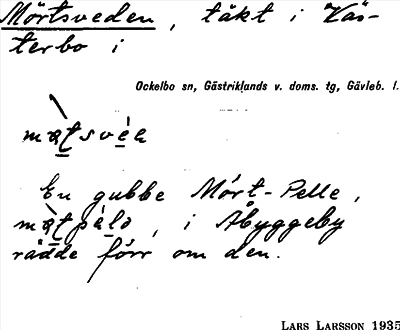 Mörtsveden, täkt i Väs-
terbo i
Ockelbo sn, Gästriklands v. doms. tg, Gävleb. l.
En gubbe Mört-Pelle,
i Åbyggeby
rådde förr om den.
LARS LARSSON 1935